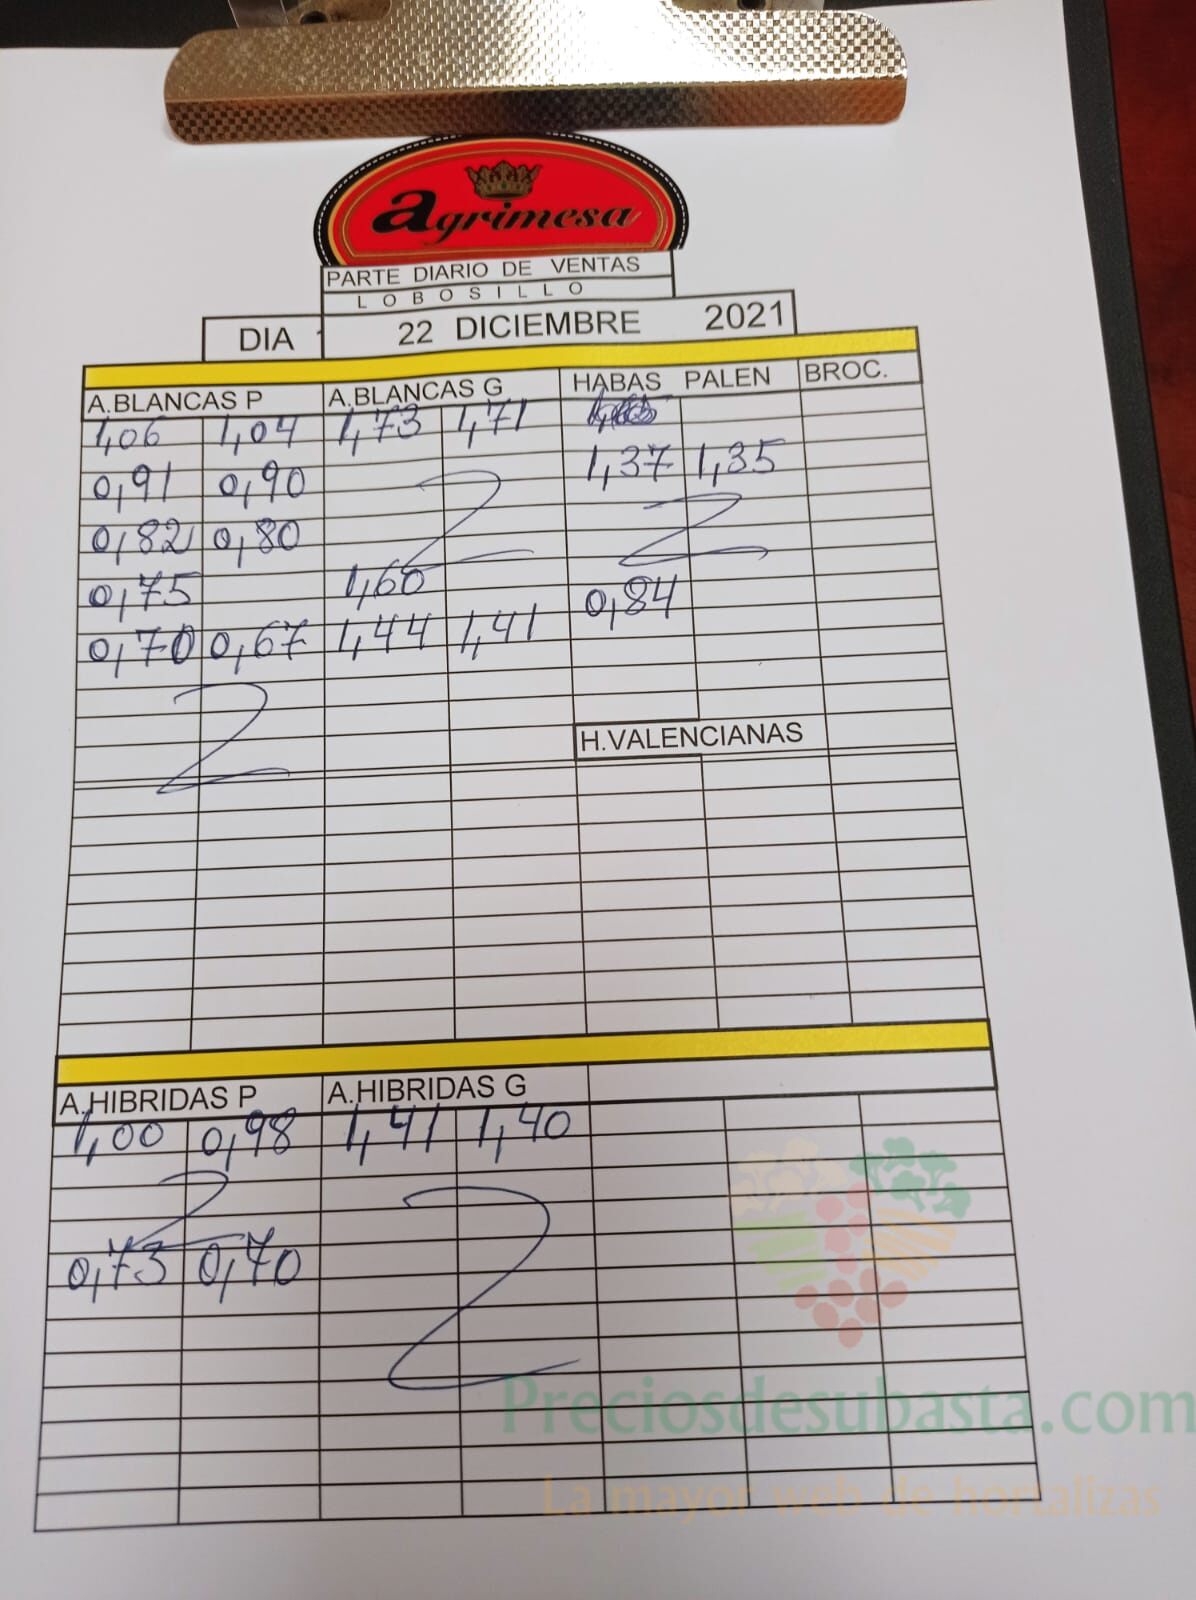 agrimesa
PARTE DIARIO DE VENTAS
LOBOSILLO
DIA 22 DICIEMBRE 2021
A.BLANCAS P A.BLANCAS G HABAS PALEN BROC.
1,06 1,04 1,73 1,71
0,91 0,90 1,37 1,35
0,82 0,80
0,75 1,60 0,84
0,70 0,67 1,44 1,41
H.VALENCIANAS
A.HIBRIDAS P A.HIBRIDAS G
1,00 0,98 1,41 1,40
0,73 0,70
Preciosdesubasta.com
La mayor web de hortalizas